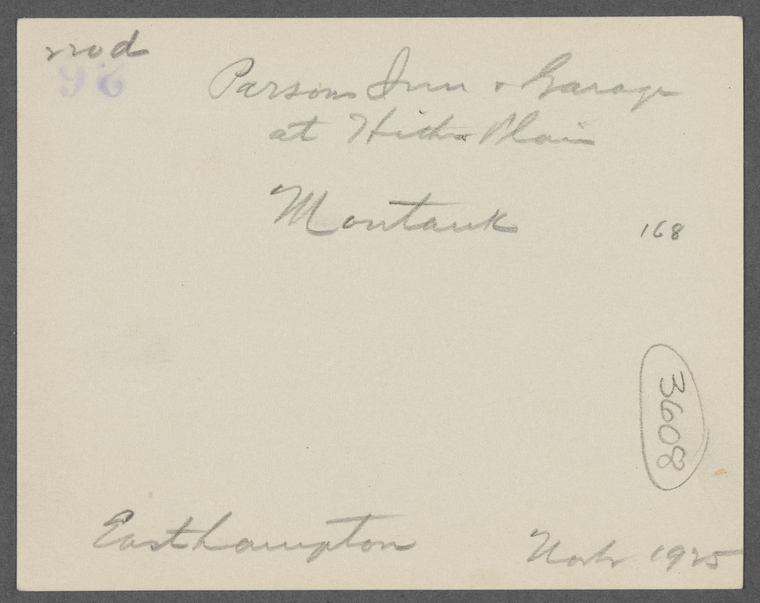 mod
26
Parsons Inn & Garage
at Hither Plain
Montauk
168
3608
Easthampton
1925